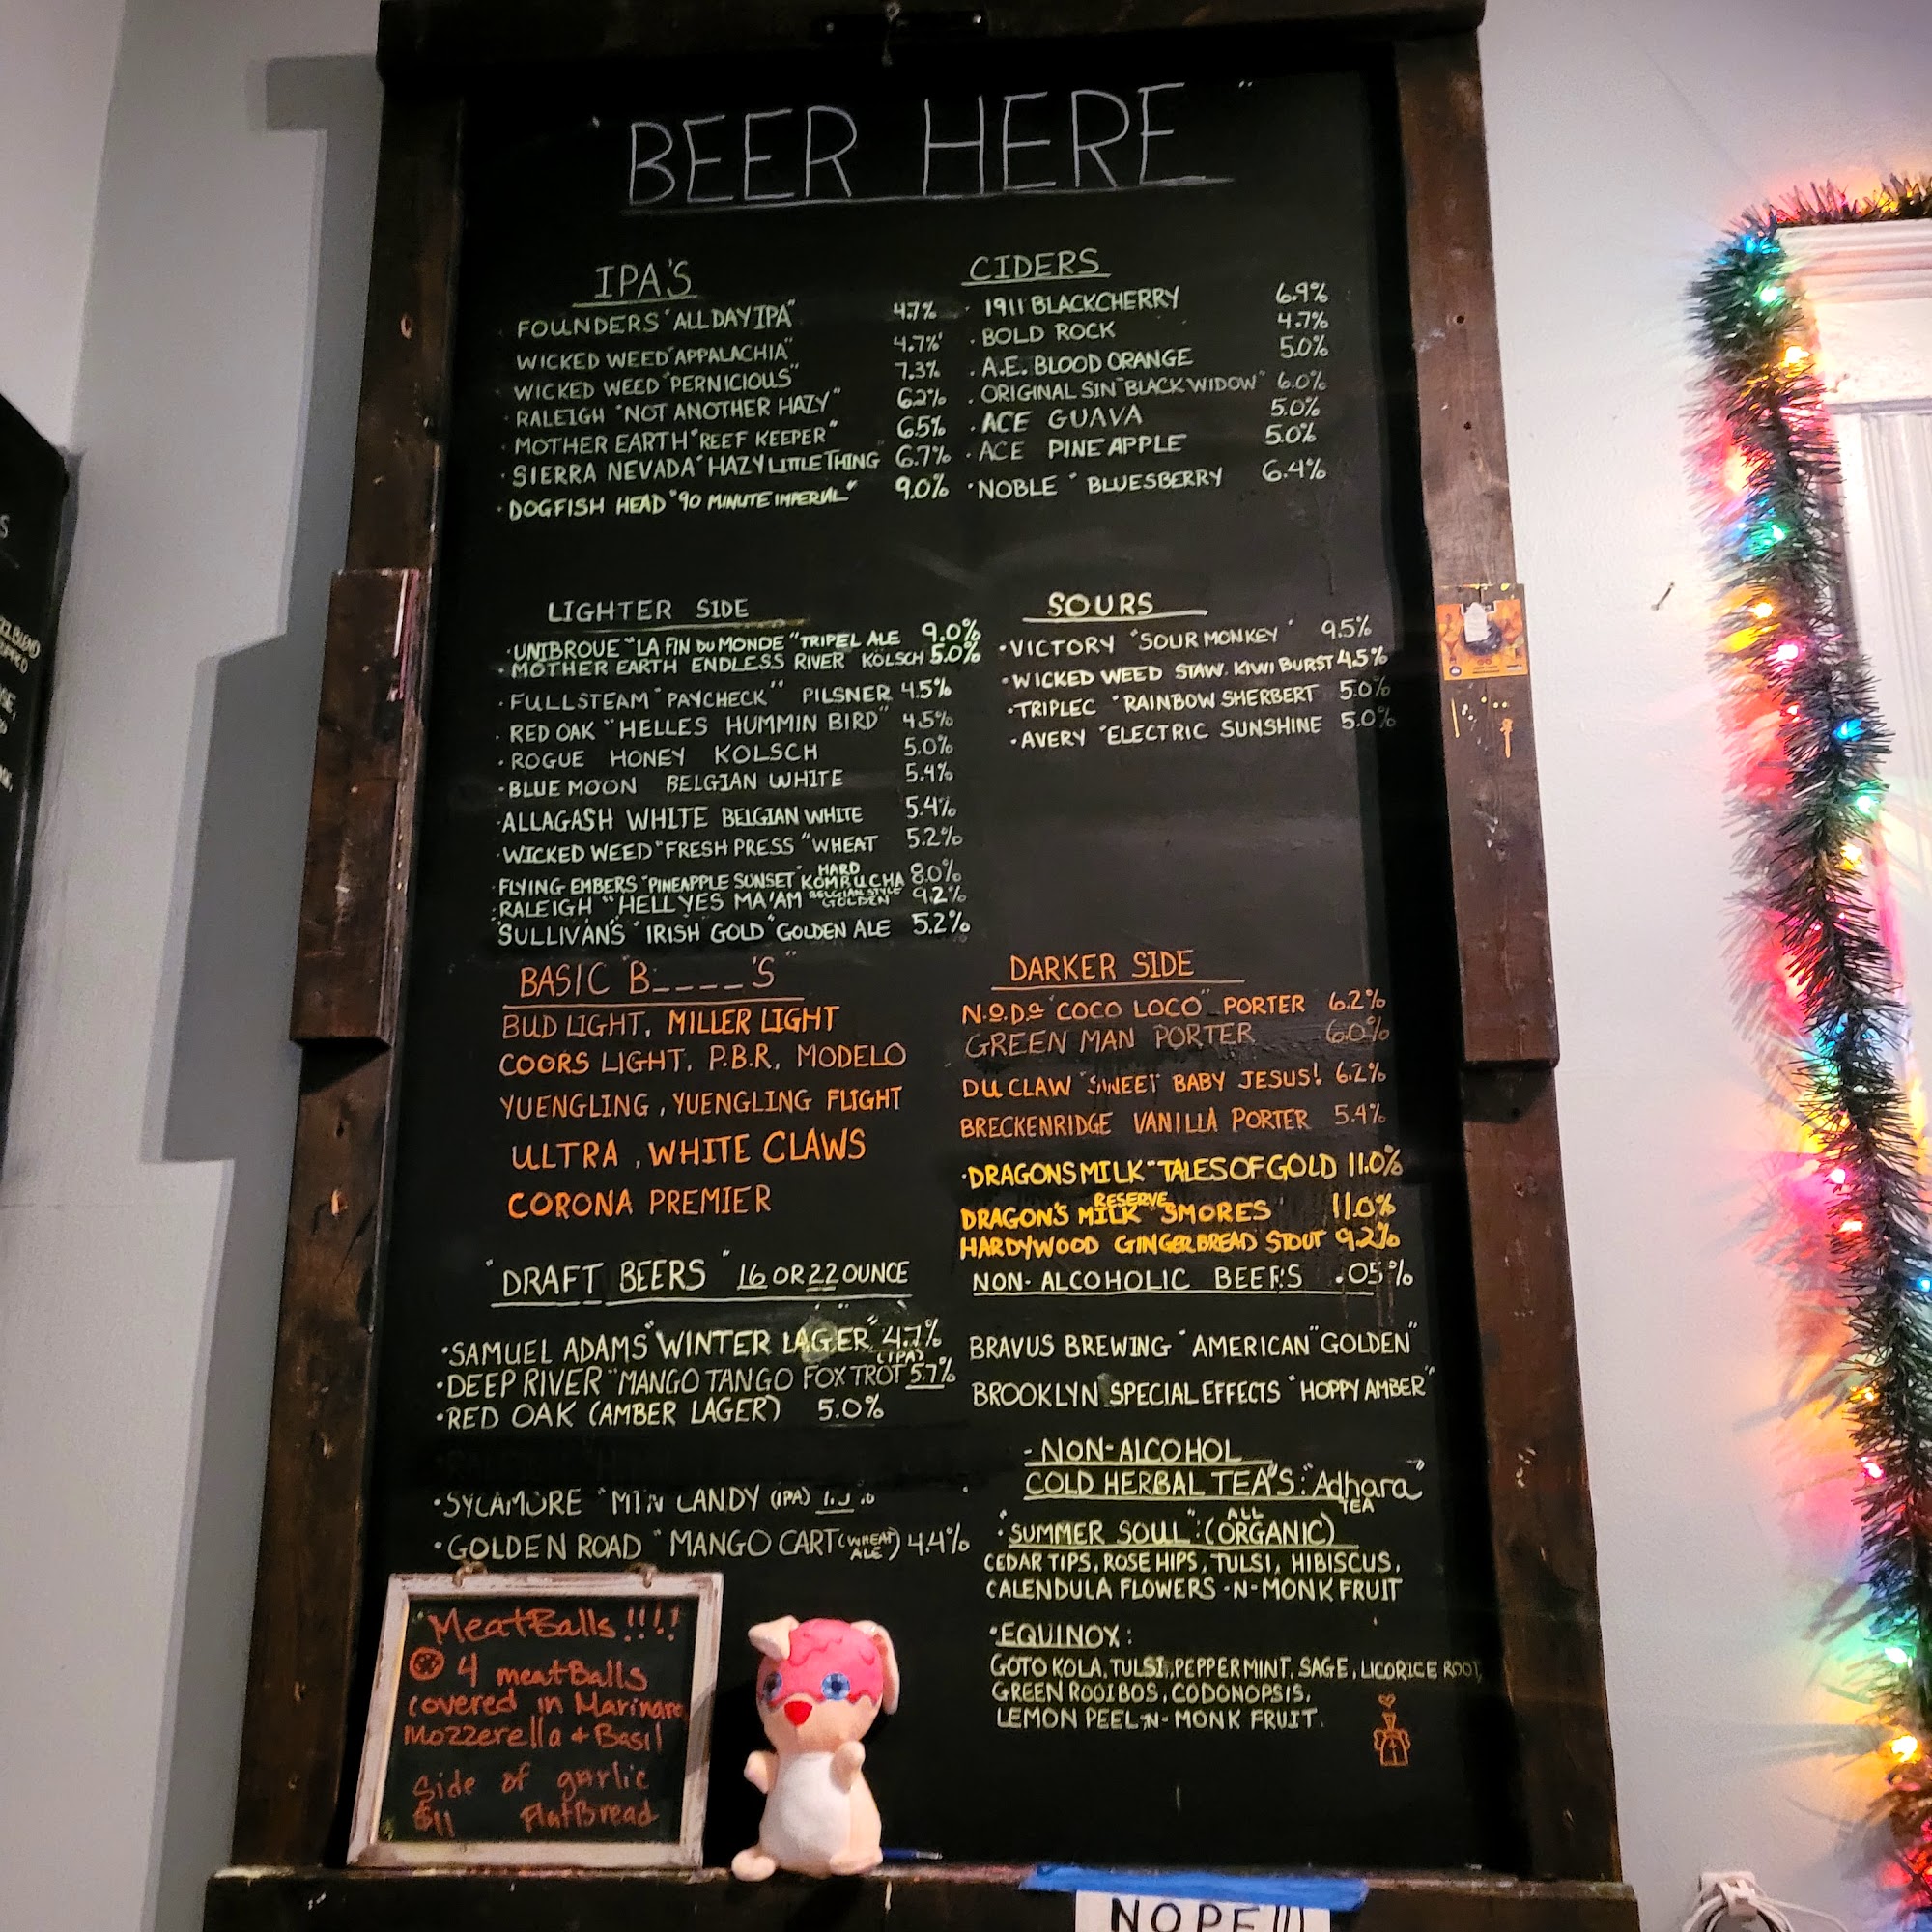 "BEER HERE"
IPA'S
FOUNDERS "ALL DAY IPA" 4.7%
WICKED WEED "APPALACHIA" 4.7%
WICKED WEED "PERNICIOUS" 7.3%
· RALEIGH "NOT ANOTHER HAZY" 6.2%
· MOTHER EARTH "REEF KEEPER" 6.5%
· SIERRA NEVADA "HAZY LITTLE THING 6.7%
· DOGFISH HEAD "90 MINUTE IMPERIAL" 9.0%
CIDERS
· 1911 BLACKCHERRY 6.9%
· BOLD ROCK 4.7%
· A.E. BLOOD ORANGE 5.0%
· ORIGINAL SIN "BLACK WIDOW" 6.0%
· ACE GUAVA 5.0%
· ACE PINEAPPLE 5.0%
· NOBLE " BLUESBERRY 6.4%
LIGHTER SIDE
· UNIBROUE "LA FIN DU MONDE" TRIPEL ALE 9.0%
· MOTHER EARTH ENDLESS RIVER KOLSCH 5.0%
· FULLSTEAM "PAYCHECK" PILSNER 4.5%
· RED OAK "HELLES HUMMIN BIRD" 4.5%
· ROGUE HONEY KOLSCH 5.0%
· BLUE MOON BELGIAN WHITE 5.4%
· ALLAGASH WHITE BELGIAN WHITE 5.4%
· WICKED WEED "FRESH PRESS" WHEAT 5.2%
· FLYING EMBERS "PINEAPPLE SUNSET" HARD KOMBUCHA 8.0%
· RALEIGH "HELL YES MA'AM BELGIAN STYLE GOLDEN 9.2%
· SULLIVAN'S "IRISH GOLD" GOLDEN ALE 5.2%
SOURS
· VICTORY "SOUR MONKEY" 9.5%
· WICKED WEED STAW. KIWI BURST 4.5%
· TRIPLEC "RAINBOW SHERBERT 5.0%
· AVERY "ELECTRIC SUNSHINE 5.0%
BASIC "B____'S"
BUD LIGHT, MILLER LIGHT
COORS LIGHT, P.B.R, MODELO
YUENGLING, YUENGLING FLIGHT
ULTRA, WHITE CLAWS
CORONA PREMIER
DARKER SIDE
N.O.D.A "COCO LOCO" PORTER 6.2%
GREEN MAN PORTER 6.0%
DU CLAW "SWEET BABY JESUS! 6.2%
BRECKENRIDGE VANILLA PORTER 5.4%
· DRAGONS MILK "TALES OF GOLD 11.0%
DRAGON'S MILK RESERVE "SMORES 11.0%
HARDYWOOD GINGERBREAD STOUT 9.2%
"DRAFT BEERS" 16 OR 22 OUNCE
· SAMUEL ADAMS "WINTER LAGER" 4.7%
· DEEP RIVER "MANGO TANGO FOX TROT (IPA) 5.7%
· RED OAK (AMBER LAGER) 5.0%
· SYCAMORE "MTN CANDY (IPA)
· GOLDEN ROAD "MANGO CART (WHEAT ALE) 4.4%
NON-ALCOHOLIC BEERS .05%
BRAVUS BREWING "AMERICAN" GOLDEN"
BROOKLYN SPECIAL EFFECTS "HOPPY AMBER"
- NON-ALCOHOL
COLD HERBAL TEA'S: "Adhara" TEA
· "SUMMER SOUL": (ALL ORGANIC)
CEDAR TIPS, ROSE HIPS, TULSI, HIBISCUS,
CALENDULA FLOWERS -N- MONK FRUIT
· EQUINOX:
GOTO KOLA, TULSI, PEPPERMINT, SAGE, LICORICE ROOT,
GREEN ROOIBOS, CODONOPSIS,
LEMON PEEL -N- MONK FRUIT.
MeatBalls!!!!
4 meatBalls
covered in Marinara
Mozzerella + Basil
Side of garlic
$11 FlatBread
NOPE!!!